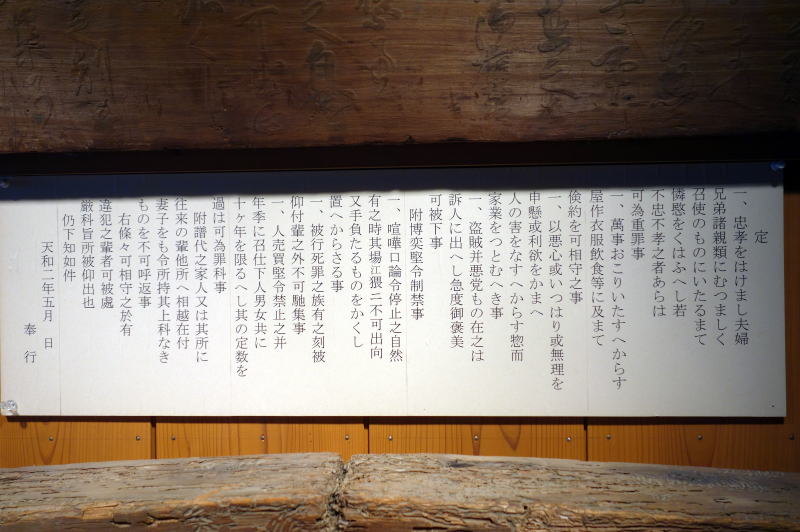 定
一、忠孝をはけまし夫婦
兄弟諸親類にむつましく
召使のものにいたるまて
憐愍をくはふへし若
不忠不孝之者あらは
可為重罪事
一、萬事おこりいたすへからす
屋作衣服飲食等に及まて
倹約を可相守之事
一、以悪心或いつはり或無理を
申懸或利欲をかまへ
人の害をなすへからす惣而
家業をつとむへき事
一、盗賊并悪党もの在之は
訴人に出へし急度御褒美
可被下事
附博奕堅令制禁事
一、喧嘩口論令停止之自然
有之時其場江猥ニ不可出向
又手負たるものをかくし
置へからさる事
一、被行死罪之族有之刻被
仰付輩之外不可馳集事
一、人売買堅令禁止之并
年季に召仕下人男女共に
十ヶ年を限るへし其の定数を
過は可為罪科事
附譜代之家人又は其所に
往来の輩他所へ相越在付
妻子をも令所持其上科なき
ものを不可呼返事
右條々可相守之於有
違犯之輩者可被處
厳科旨所被仰出也
仍下知如件
天和二年五月 日
奉行